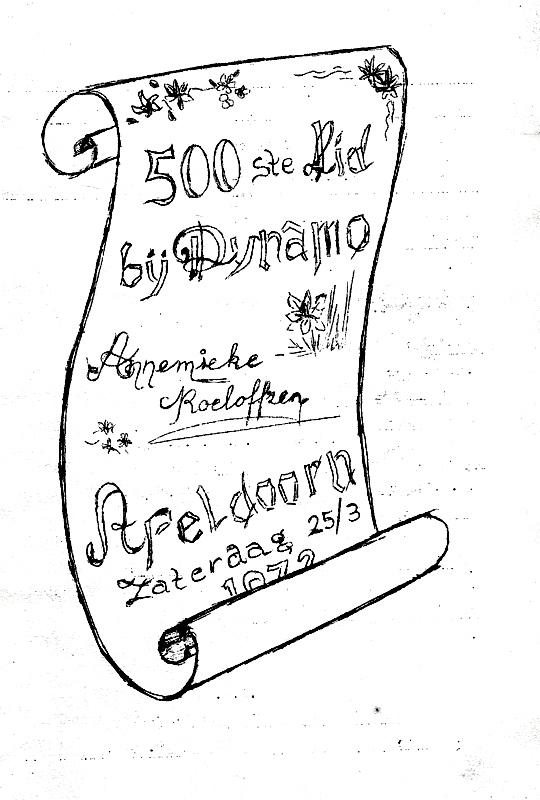 500 ste Lid
bij Dynâmo
Annemieke -
Roeloffzen
Apeldoorn
Zaterdag 25/3
1972